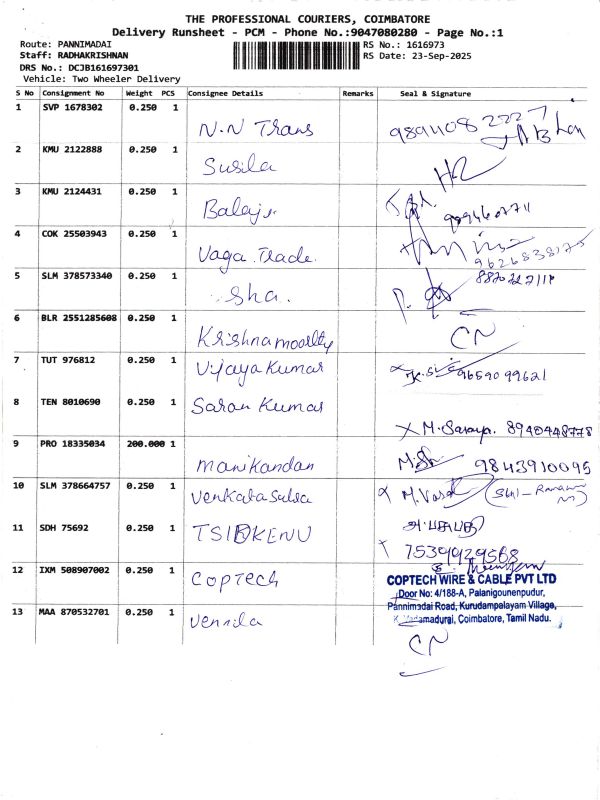 THE PROFESSIONAL COURIERS, COIMBATORE
Delivery Runsheet - PCM - Phone No.:9047080280 - Page No.:1
Route: PANNIMADAI
Staff: RADHAKRISHNAN
DRS No.: DCJB161697301
Vehicle: Two Wheeler Delivery
RS No.: 1616973
RS Date: 23-Sep-2025
S No Consignment No Weight PCS Consignee Details Remarks Seal & Signature
1 SVP 1678302 0.250 1 N.N Trans
2 KMU 2122888 0.250 1 Susila
3 KMU 2124431 0.250 1 Balaji
4 COK 25503943 0.250 1 Vaga Trade 9626838175
5 SLM 378573340 0.250 1 Sha.
6 BLR 2551285608 0.250 1 Krishnamoorthy CN
7 TUT 976812 0.250 1 Vijaya Kumar 9659099621
8 TEN 8010690 0.250 1 Saran Kumar M. Saranya. 8940448778
9 PRO 18335034 200.000 1 Manikandan 9843910095
10 SLM 378664757 0.250 1 M. Vasa
11 SDH 75692 0.250 1 7539929568
12 IXM 508907002 0.250 1 Coptech
COPTECH WIRE & CABLE PVT LTD
Door No: 4/188-A, Palanigounenpudur,
Pannimadai Road, Kurudampalayam Village,
Coimbatore, Tamil Nadu.
13 MAA 870532701 0.250 1 Vennila CN